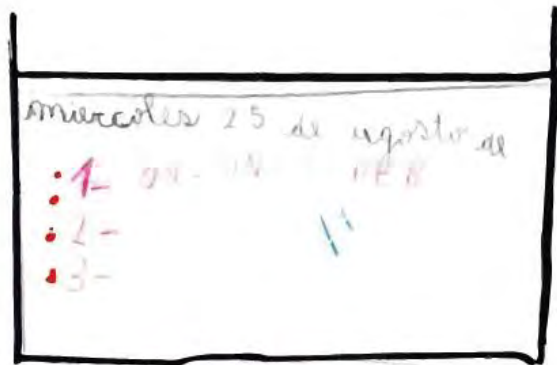 miercoles 25 de agosto de
1-
2-
3-